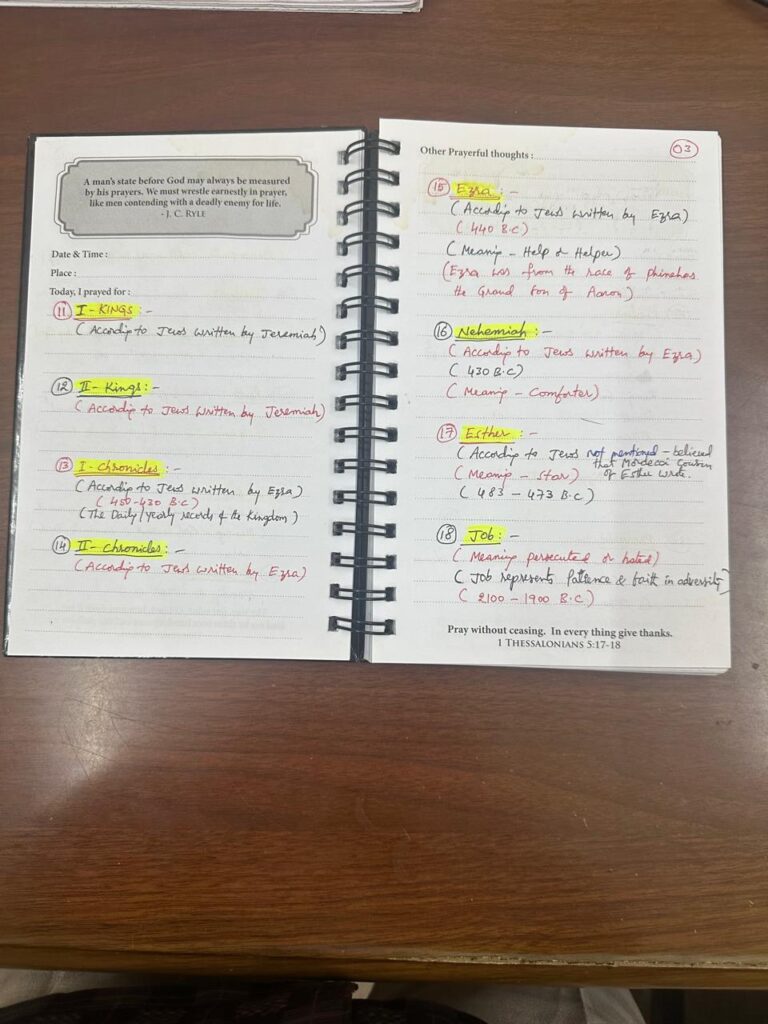 A man's state before God may always be measured
by his prayers. We must wrestle earnestly in prayer,
like men contending with a deadly enemy for life.
- J. C. RYLE
Date & Time :
Place :
Today, I prayed for :
11 I - KINGS :-
( According to Jews written by Jeremiah )
12 II - Kings :-
( According to Jews written by Jeremiah )
13 I - chronicles :-
( According to Jews written by Ezra )
( 450-430 B.C )
( The Daily / yearly records of the Kingdom )
14 II - chronicles :-
( According to Jews written by Ezra )
Other Prayerful thoughts :
03
15 Ezra :-
( According to Jews written by Ezra )
( 440 B.C )
( Meaning - Help or Helper )
( Ezra was from the race of phinehas
the Grand Son of Aaron )
16 Nehemiah :-
( According to Jews written by Ezra )
( 430 B.C )
( Meaning - Comforter )
17 Esther :-
( According to Jews not mentioned - believed
that Mordecai Cousin
of Esther wrote.
( Meaning - Star )
( 483 - 473 B.C )
18 Job :-
( Meaning persecuted or hated )
( Job represents Patience & faith in adversity )
( 2100 - 1900 B.C )
Pray without ceasing. In every thing give thanks.
1 THESSALONIANS 5:17-18